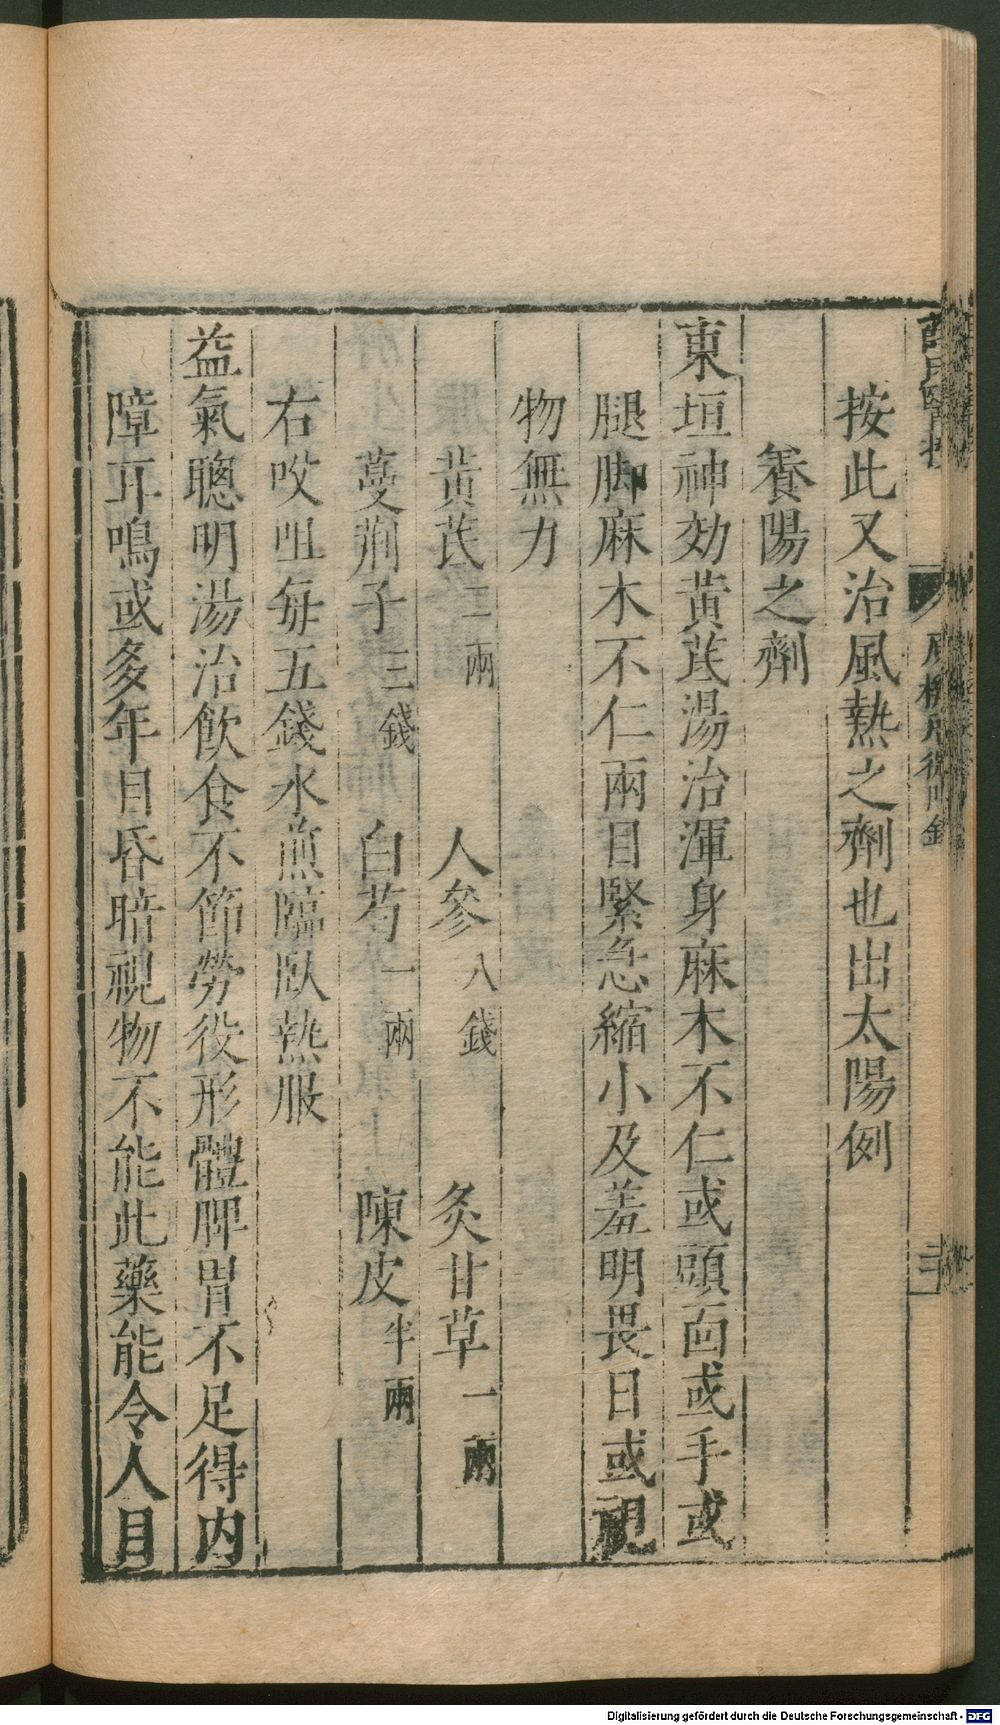 按此又治風熱之劑也出太陽例
養陽之劑
東垣神効黃芪湯治渾身麻木不仁或頭面或手或
腿脚麻木不仁兩目緊急縮小及羞明畏日或視
物無力
黃芪二兩 人參八錢 炙甘草一兩
蔓荊子三錢 白芍一兩 陳皮半兩
右㕮咀每五錢水煎臨臥熱服
益氣聰明湯治飲食不節勞役形體脾胃不足得内
障耳鳴或多年目昏暗視物不能此藥能令人目
Digitalisierung gefördert durch die Deutsche Forschungsgemeinschaft - DFG